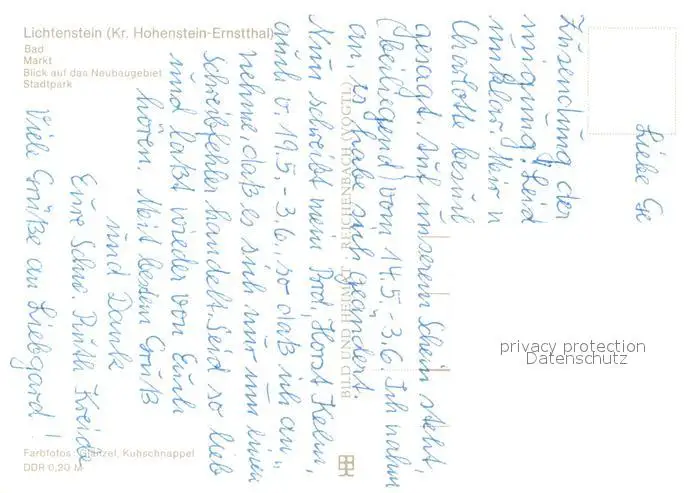 Lichtenstein (Kr. Hohenstein-Ernstthal)
Bad
Markt
Blick auf das Neubaugebiet
Stadtpark
Liebe Ge
Zusendung der
migung! Leid
unklar. Wir
Charlotte besuch
gesagt auf unserem Schein steht,
(beiliegend) vom 14.5.-3.6. Ich nahm
an, es habe sich geändert.
Nun schreibt mein Brd., Horst Kelm,
auch v. 19.5.-3.6., so daß ich an-
nehme daß es sich nur um einen
Schreibfehler handelt. Seid so lieb
und laßt wieder von Euch
hören. Mit bestem Gruß
und Dank
Eure Schw. Ruth Kreide
Viele Grüße an Liebgard!
BILD UND HEIMAT REICHENBACH (VOGTL)
privacy protection
Datenschutz
Farbfotos: Glänzel, Kuhschnappel
DDR 0,20 M